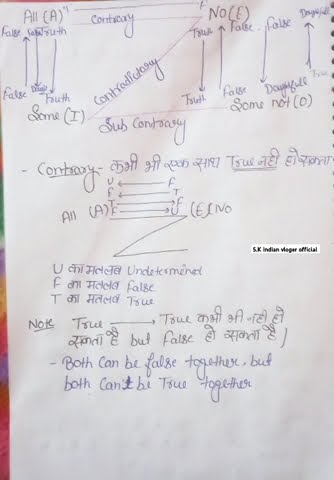 All (A) Contrary No (E)
False Truth True False False
Contradictory
False Truth Truth False True
Some (I) Some not (O)
Sub Contrary
- Contrary - कभी भी एक साथ True नही हो सकता
U ← F
F ← T
T → F
F → U
All (A) (E) No
S.K Indian vloger official
U का मतलब Undetermind
F का मतलब False
T का मतलब True
Note True → True कभी भी नही हो
सकता है but False हो सकता है /
- Both Can be false together, but
both Can't be True together